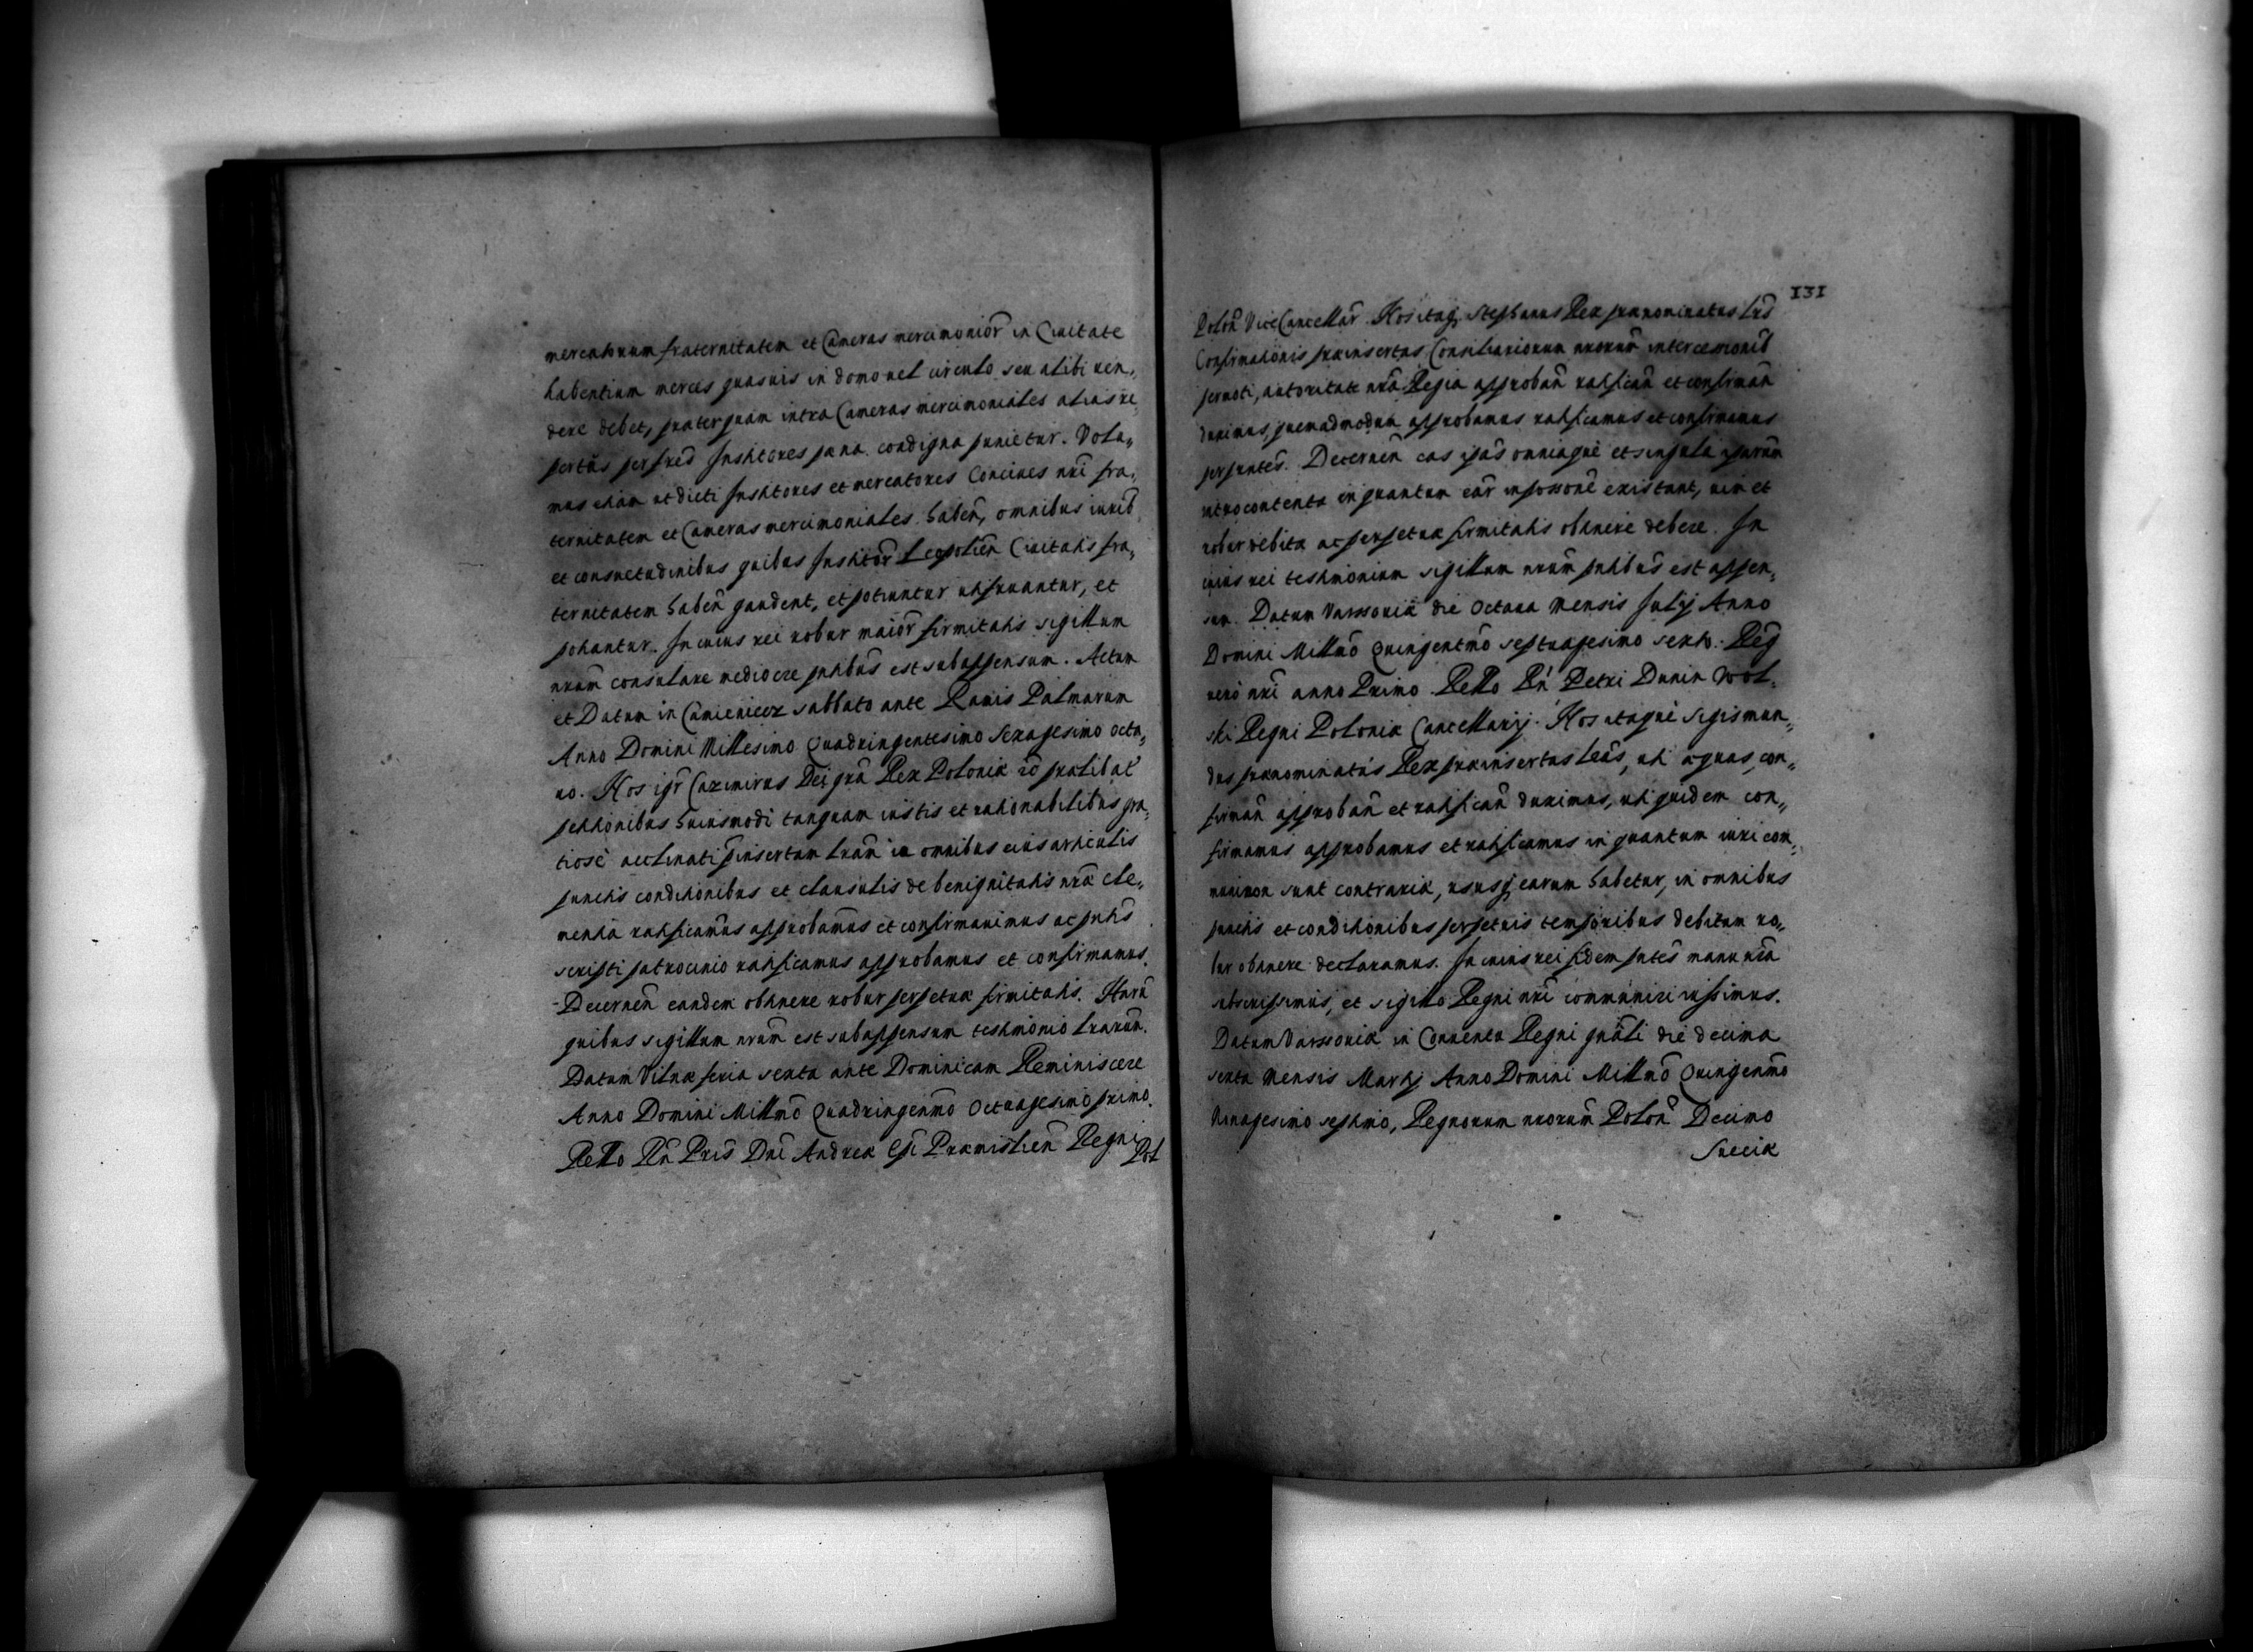 mercatorum fraternitatem et Cameras mercimonior̃ in Ciuitate
habentium merces quasuis in domo uel circulo seu alibi uen„
dere debet, præterquam intra Cameras mercimoniales alias re„
pertus per præd Institores pæna condigna punietur. Volu„
mus etiam ut dicti Institores et mercatores Conciues nr̃i fra„
ternitatem et Cameras mercimoniales haben̄, omnibus iurib
et consuetudinibus quibus Institor̃ Leopolien̄ Ciuitatis fra„
ternitatem haben̄ gaudent, et potiuntur utifruantur, et
potiantur. In cuius rei robur maior̃ firmitatis sigillum
nr̃um consulare mediocre pñtibus est subappensum. Actum
et Datum in Camieniecz sabbato ante Ramis Palmarum
Anno Domini Millesimo Quadringentesimo Sexagesimo octa„
uo. Nos igr̃ Cazimirus Dei grã Rex Poloniæ prælibat
petitionibus huiusmodi tanquam iustis et rationabilibus gra„
tiosè acclinati p̃insertam lr̃am in omnibus eius articulis
punctis conditionibus et clausulis de benignitatis nr̃æ cle„
mentia ratificamus approbamus et confirmauimus ac pñtis
scripti patrocinio ratificamus approbamus et confirmamus.
Decernen̄ eandem obtinere robur perpetuæ firmitatis. Harũ
quibus sigillum nr̃um est subappensum testimonio lr̃arum.
Datum Vilnæ feria sexta ante Dominicam Reminiscere
Anno Domini Millm̃o Quadringenm̃o Octuagesimo primo.
Rel̃lo Rñ Pris Dñi Andreæ Ep̃i Præmislien̄ Regni
Pol
131
Polon̄ ViceCancellar̃. Nos itaq. Stephanus Rex prænominatus lr̃as
Confirmationis præinsertas Consiliariorum nr̃orum intercessionib
permoti, autoritate nr̃a Regia approban̄ ratifican̄ et confirman̄
duximus, quemadmodum approbamus ratificamus et confirmamus
perpñtes. Decernen̄ eas ipãs omniaque et singula ipsarum
introcontenta in quantum ear̃ in possone existant, uim et
robur debitæ ac perpetuæ firmitatis obtinere debere. In
cuius rei testimonium sigillum nr̃um pñtibus est appen„
sum. Datum Varssouiæ die Octaua Mensis Iulij Anno
Domini Millm̃o Quingentm̃o septuagesimo sexto. Reg̃
uero nr̃i anno Primo. Rel̃lo Rñ Petri Dunin Wol„
ski Regni Poloniæ Cancellarij. Nos itaquè Sigismun„
dus prænominatus Rex præinsertas lr̃as, uti æquas, con„
firman̄ approban̄ et ratifican̄ duximus, uti quidem con„
firmamus approbamus et ratificamus in quantum iuri com„
muni non sunt contrariæ, ususq̃ earum habetur, in omnibus
punctis et conditionibus perpetuis temporibus debitum ro„
bur obtinere declaramus. In cuius rei fidem pñtes manu nr̃a
subscripsimus, et sigillo Regni nr̃i communiri iussimus.
Datum Varssouiæ in Conuentu Regni gñali die decima
sexta Mensis Martij Anno Domini Millm̃o Quingenm̃o
Nonagesimo septimo, Regnorum nr̃orum Polon̄ Decimo
Sueciæ